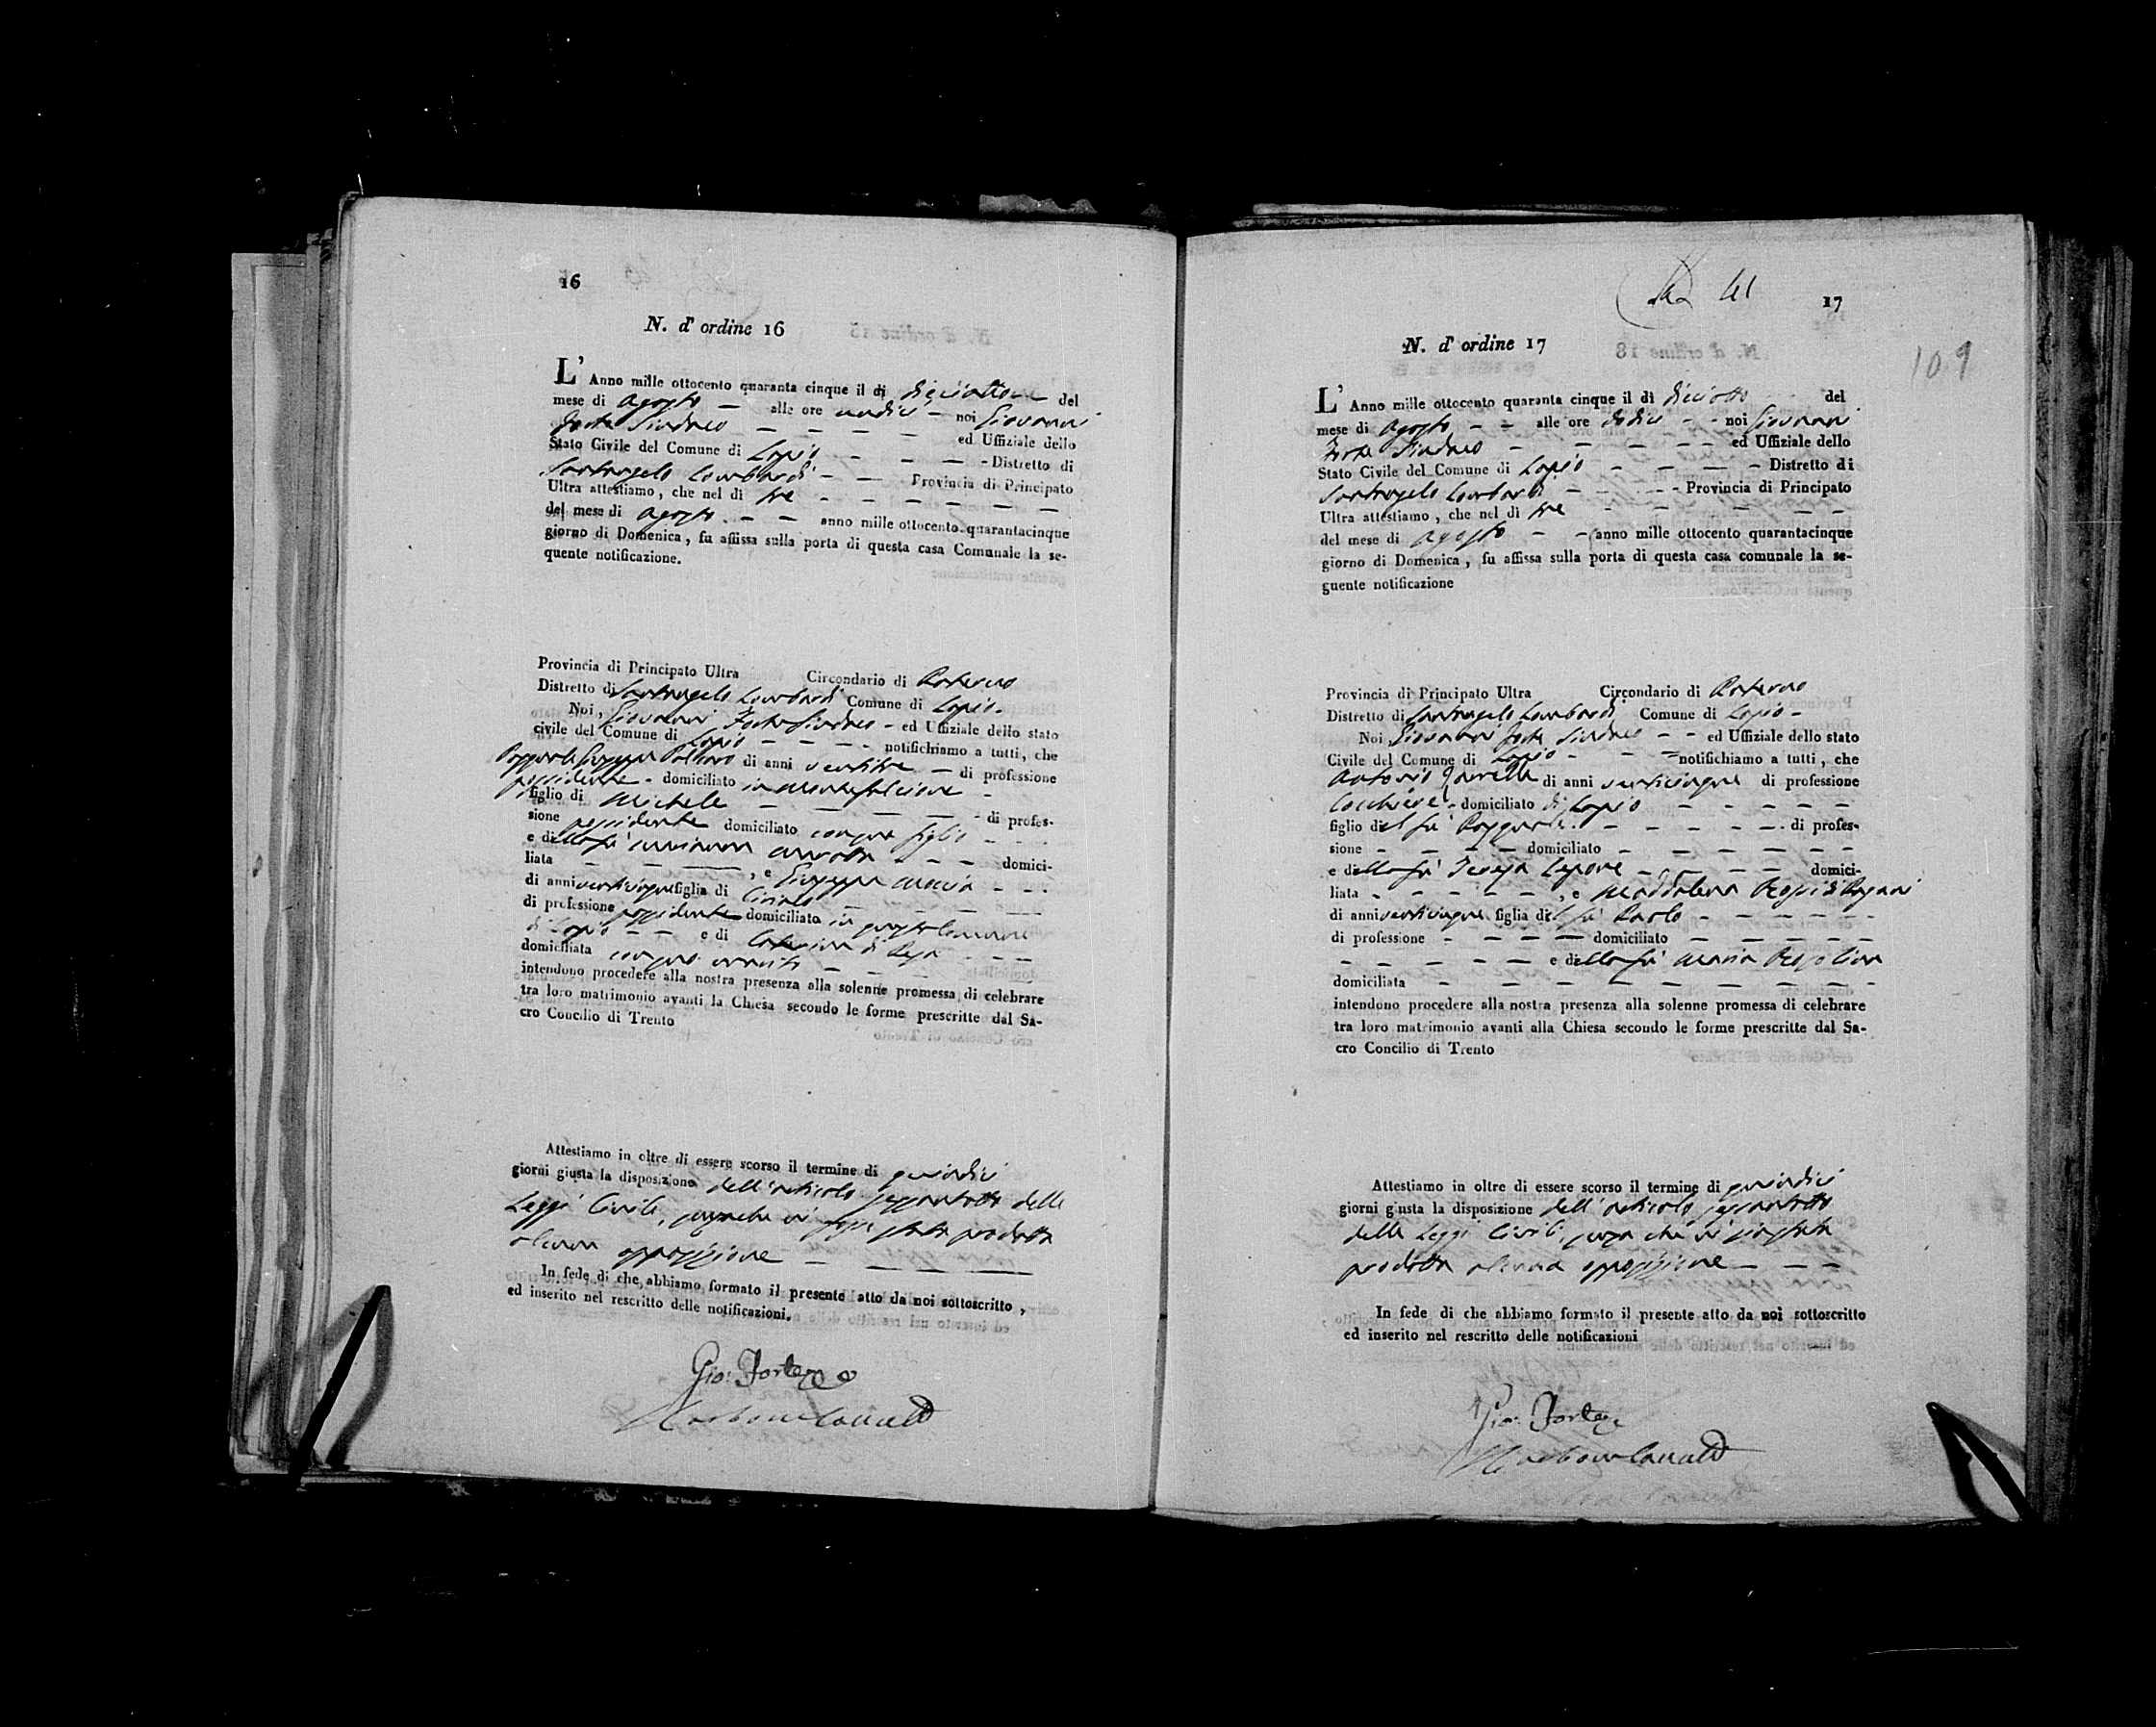 16
N. d' ordine 16
L' Anno mille ottocento quaranta cinque il dì diciotto del
mese di Agosto alle ore undici noi Giovanni
Forte Sindaco ed Uffiziale dello
Stato Civile del Comune di Lapio Distretto di
Santangelo Lombardi Provincia di Principato
Ultra attestiamo, che nel dì tre
del mese di Agosto anno mille ottocento quarantacinque
giorno di Domenica, fu affissa sulla porta di questa casa Comunale la se-
quente notificazione.
Provincia di Principato Ultra Circondario di Paterno
Distretto di Santangelo Lombardi Comune di Lapio
Noi, Giovanni Forte Sindaco ed Uffiziale dello stato
civile del Comune di Lapio notifichiamo a tutti, che
Giuseppe di anni ventitre di professione
possidente domiciliato in Montefalcione
figlio di Michele di profes-
sione possidente domiciliato con suo figlio
e della fu domici-
liata , e Giuseppa Maria
di anni venticinque figlia di Ciriaco
di professione possidente domiciliato in questo Comune
di Lapio e di Caterina di
domiciliata con suo marito
intendono procedere alla nostra presenza alla solenne promessa di celebrare
tra loro matrimonio avanti la Chiesa secondo le forme prescritte dal Sa-
cro Concilio di Trento
Attestiamo in oltre di essere scorso il termine di quindici
giorni giusta la disposizione dell'articolo sessantotto delle
Leggi Civili, senza che vi fosse stata prodotta
alcuna opposizione
In fede di che, abbiamo formato il presente atto da noi sottoscritto,
ed inserito nel rescritto delle notificazioni.
Gio: Forte
41
17
109
N. d' ordine 17
L' Anno mille ottocento quaranta cinque il dì diciotto del
mese di Agosto alle ore dodici noi Giovanni
Forte Sindaco ed Uffiziale dello
Stato Civile del Comune di Lapio Distretto di
Santangelo Lombardi Provincia di Principato
Ultra attestiamo, che nel dì tre
del mese di Agosto anno mille ottocento quarantacinque
giorno di Domenica, fu affissa sulla porta di questa casa comunale la se-
guente notificazione
Provincia di Principato Ultra Circondario di Paterno
Distretto di Santangelo Lombardi Comune di Lapio
Noi Giovanni Forte Sindaco ed Uffiziale dello stato
Civile del Comune di Lapio notifichiamo a tutti, che
Antonio di anni venticinque di professione
domiciliato di Lapio
figlio del fu Pasquale di profes-
sione domiciliato
e della fu Teresa Lepore domici-
liata , e Maddalena
di anni venticinque figlia del fu Paolo
di professione domiciliato
e della fu Maria
domiciliata
intendono procedere alla nostra presenza alla solenne promessa di celebrare
tra loro matrimonio avanti alla Chiesa secondo le forme prescritte dal Sa-
cro Concilio di Trento
Attestiamo in oltre di essere scorso il termine di quindici
giorni giusta la disposizione dell'articolo sessantotto
delle Leggi Civili, senza che vi sia stata
prodotta alcuna opposizione
In fede di che abbiamo formato il presente atto da noi sottoscritto
ed inserito nel rescritto delle notificazioni
Gio: Forte